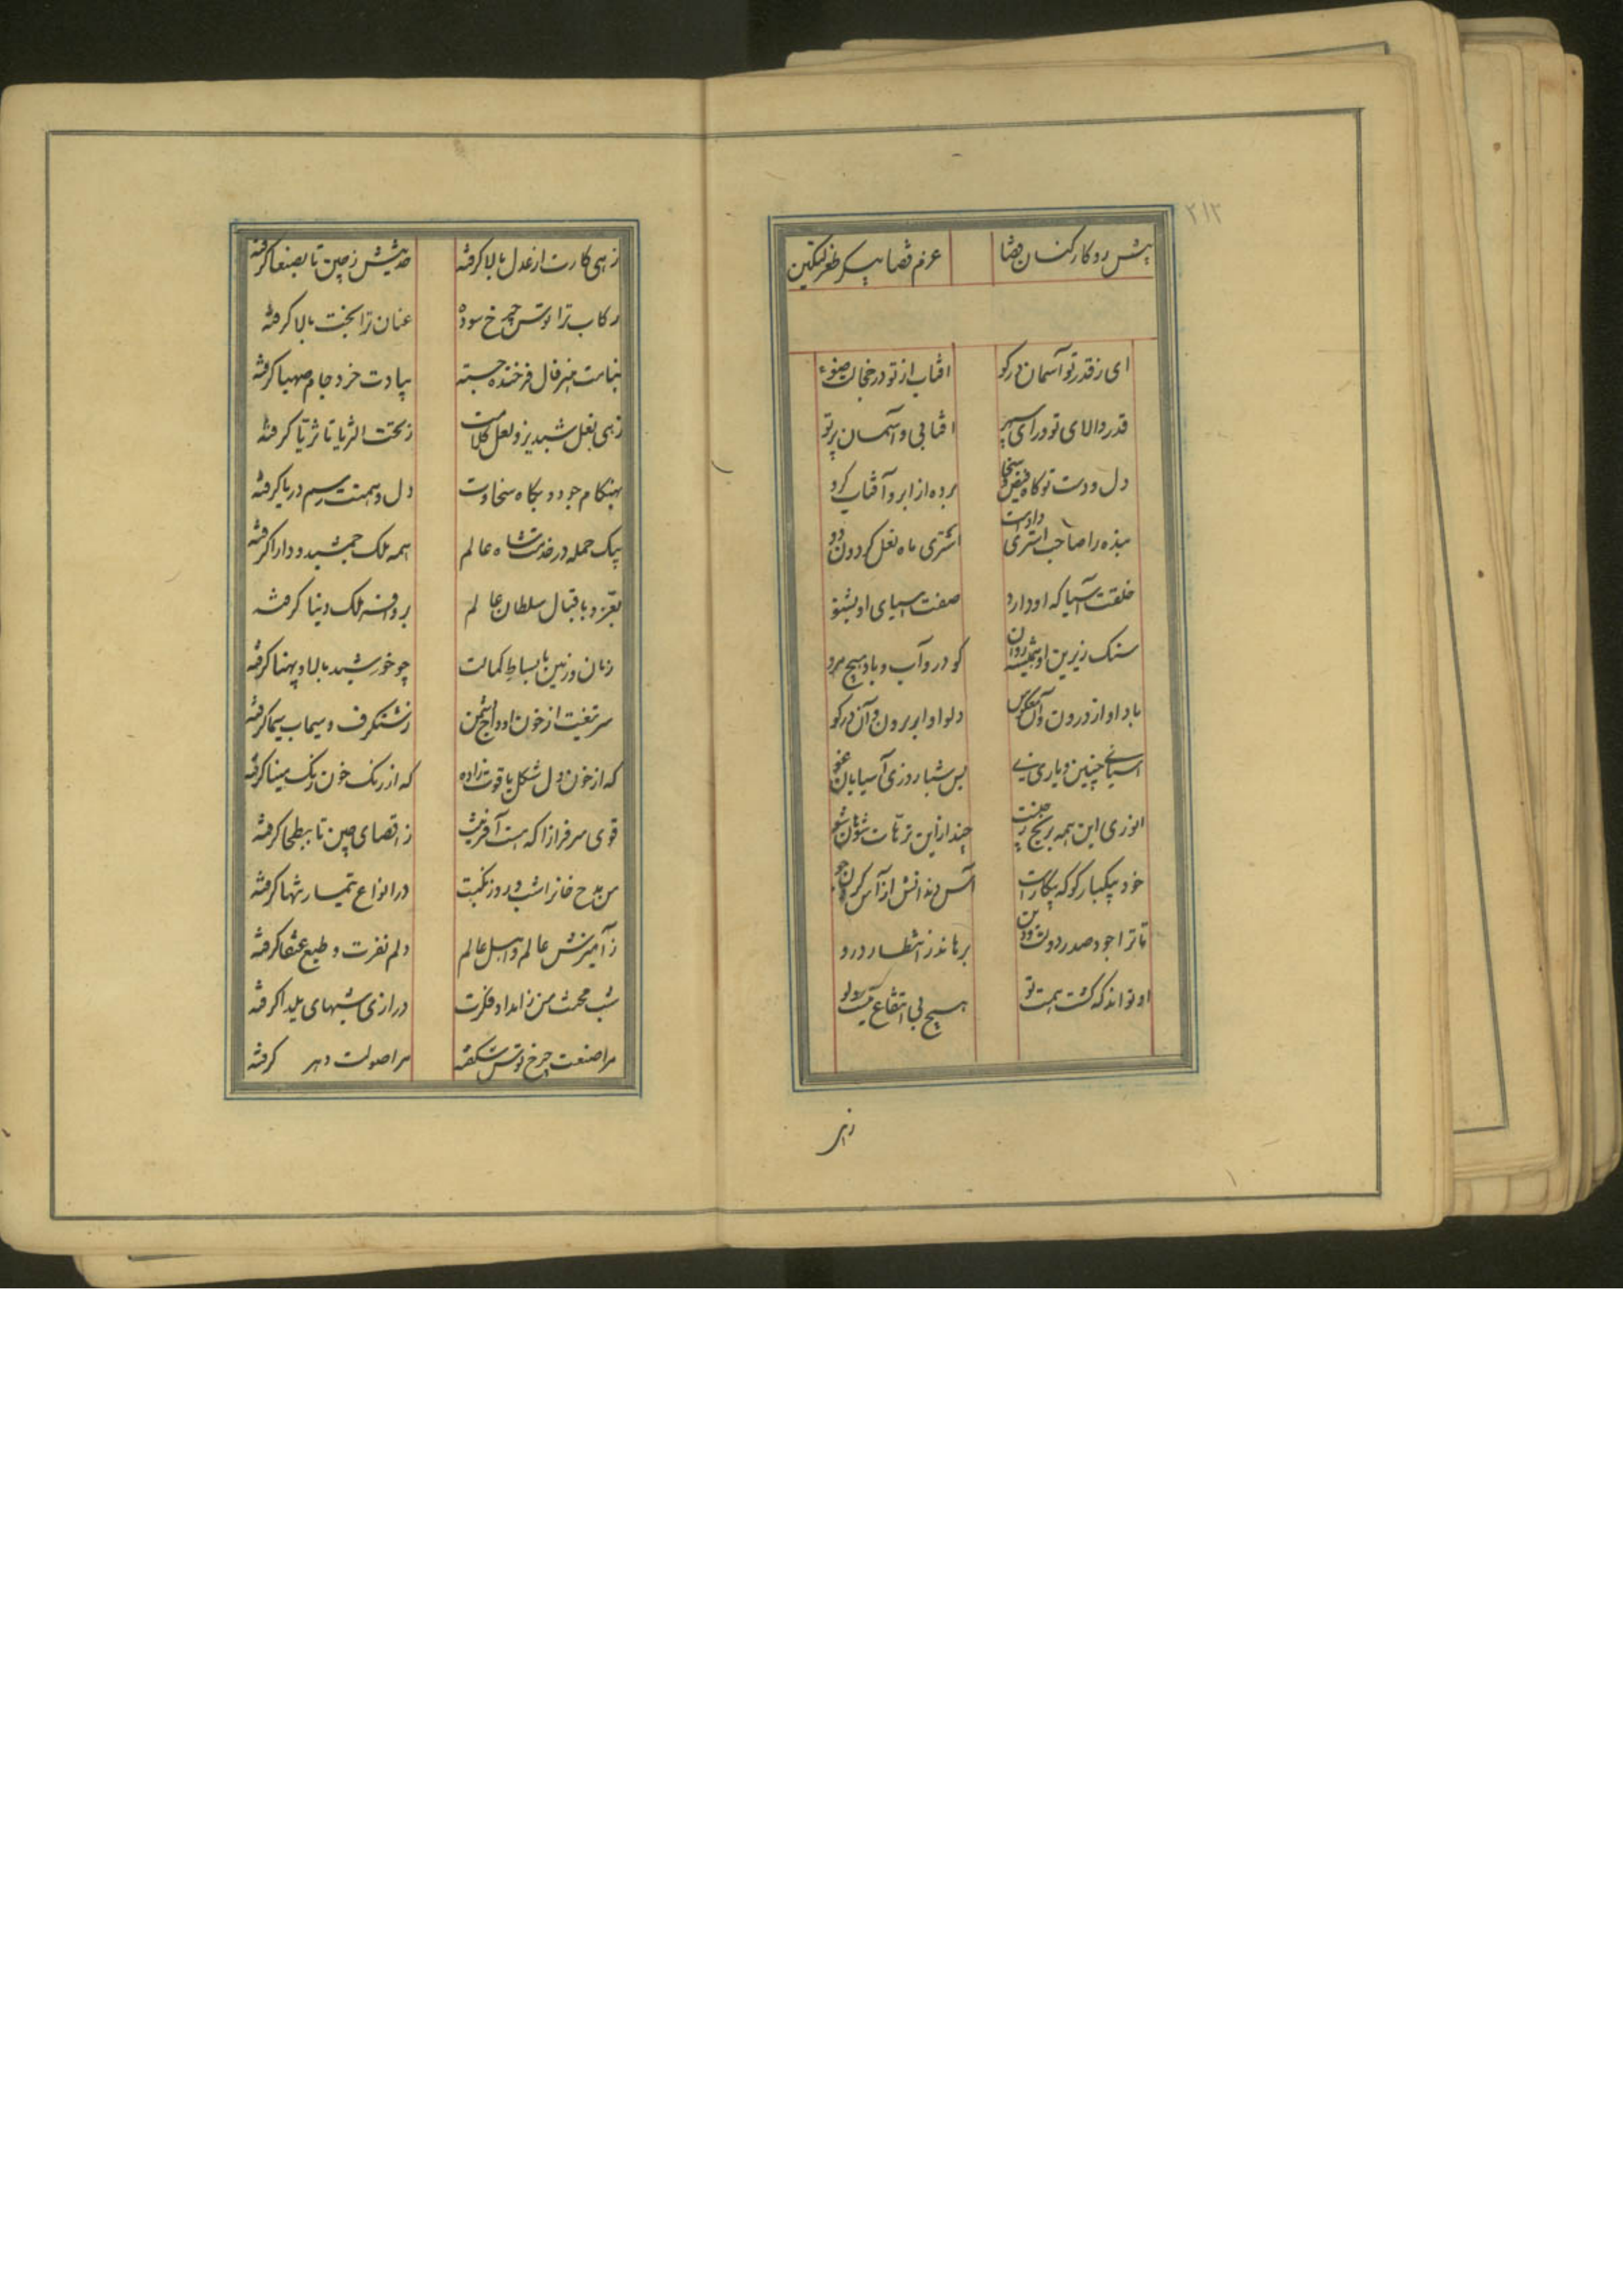 ۲۱۲
پیش رو کارکنان قضا عزم قضا پیکر طغرلتکین
ای ز قدر تو آسمان در کو افتاب از تو در خجالت ضوء
قدر والای تو ورای سپهر افتابی و آسمان پرتو
دل و دست تو گاه فیض سخا برده از ابر و آفتاب گرو
بنده را صاحب استری دادست استری ماه نعل گردون دو
خلقت آسیا که او دارد صفت اسیای او بشنو
سنک زیرین او همیشه روان کو درو آب و باد هیچ مرو
باد او از درون و آن معکوس دلو او ابر برون و آن در کو
اسیائی چنین و یاری نی بس شبا روزی آسیابان غو
انوری این همه برنج چنت چند ازین ترهات شوهان شو
خود بیکبار کو که بیکارست آس دندانش از آس کردن جو
تا ترا جود صدر دولت و دین برهاند ز انتظار درو
او تواند که گشت همت تو هیچ بی انتفاع نیست ولو
زهی
زهی کارت از عدل بالا گرفته صدیتش ز چین تا بصنعا گرفته
رکاب ترا توسن چرخ سوده عنان ترا بخت بالا گرفته
بنامت هنر فال فرخنده جسته بیادت خرد جام صهبا گرفته
زهی نعل شبدیز و لعل کلامت ز تحت الثریا تا ثریا گرفته
بهنگام جود و بگاه سخاوت دل و همتت رسم دریا گرفته
بیک حمله در خدمت شاه عالم همه ملک جمشید و دارا گرفته
بعز و باقبال سلطان عالم بر و بوم ملک دنیا گرفته
زمان و زمین با بساط کمالت چو خورشید بالا و پهنا گرفته
سر تیغت از خون اوداج دشمن ز شنگرف و سیماب سیما گرفته
که از خون دل شکل یاقوت زاده که از رنک خون رنک مینا گرفته
قوی سرفرازا که هست آفرینت ز اقصای چین تا ببطحا گرفته
من مدح خانرا شب و روز نکبت در انواع تیمار تنها گرفته
ز آمیزش عالم و اهل عالم دلم نفرت و طبع عنقا گرفته
شب محنت من ز امداد فکرت درازی شبهای یلدا گرفته
مرا صنعت چرخ توسن شکفته مرا صولت دهر گرفته